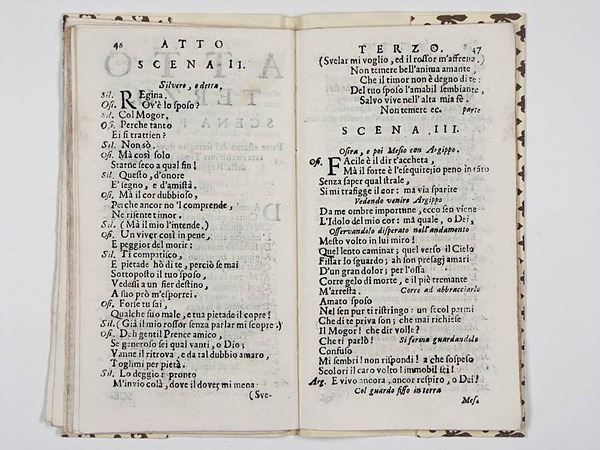 46 ATTO
SCENA. II.
Silvero, e detta.
Sil. REgina.
Osi. Ov'è lo sposo?
Sil. Col Mogor.
Osi. Perche tanto
Ei si trattien?
Sil. Non sò.
Osi. Mà così solo
Starne seco a qual fin!
Sil. Questo, d'onore
E' segno, e d'amistà.
Osi. Mà il cor dubbioso,
Perche ancor no'l comprende,
Ne risente timor.
Sil. (Mà il mio l'intende.)
Osi. Un viver così in pene,
E peggior del morir:
Sil. Ti compatisco,
E pietade hò di te, perciò se mai
Sottoposto il tuo sposo,
Vedessi a un fier destino,
A suo prò m'esporrei.
Osi. Forse tu sai,
Qualche suo male, e tua pietade il copre!
Sil. (Già il mio rossor senza parlar mi scopre.)
Osi. Deh gentil Prence amico,
Se generoso sei qual vanti, o Dio;
Vanne il ritrova, e da tal dubbio amaro,
Toglimi per pietà.
Sil. Lo deggio: pronto
M'invio colà, dove il dover mi mena
(Sve-
TERZO. 47
(Svelar mi voglio, ed il rossor m'affrena.)
Non temere bell'anima amante,
Che il timor non è degno di te:
Del tuo sposo l'amabil sembiante,
Salvo vive nell'alta mia fè.
Non temere ec. parte
SCENA. III.
Osira, e poi Mesio con Argippo.
Osi. FAcile è il dir t'accheta,
Mà il forte è l'esequire; io peno in tãto
Senza saper qual strale,
Si mi trafigge il cor: mà via sparite
Vedendo venire Argippo
Da me ombre importune, ecco sen viene
L'Idolo del mio cor: mà quale, o Dei,
Osservandolo disperato nell'andamento
Mesto volto in lui miro!
Quel lento caminar; quel verso il Cielo
Fissar lo sguardo; ah son presagj amari
D'un gran dolor; per l'ossa
Corre gelo di morte, e il piè tremante
M'arresta. Corre ad abbracciarlo
Amato sposo
Nel sen pur ti ristringo: un secol parmi
Che di te priva son; che mai richiese
Il Mogor! che dir volle?
Che ti parlò! Si ferma guardandolo
Confuso
Mi sembri! non rispondi! a che sospeso
Scolori il caro volto! immobil sei!
Arg. E vivo ancora, ancor respiro, o Dei!
Col guardo fisso in terra
Mes.